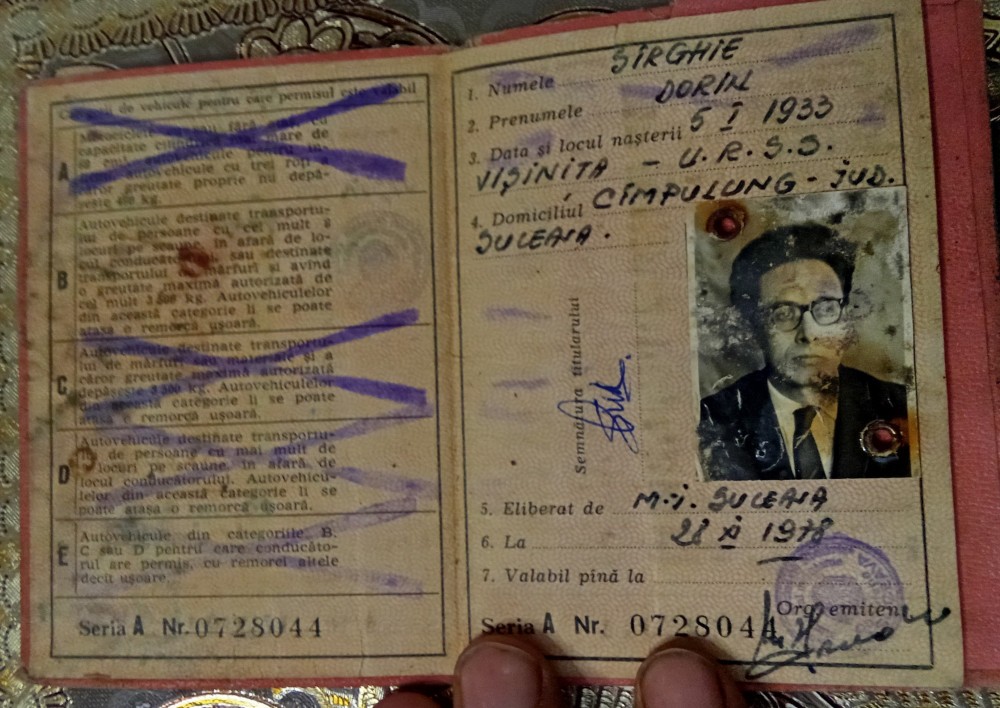 de vehicule pentru care permisul este valabil
A
capacitate
autovehicule cu trei roţi a
căror greutate proprie nu depă-
şeşte 400 kg.
B
Autovehicule destinate transportu-
lui de persoane cu cel mult 8
locuri pe scaune, în afară de lo-
cul conducătorului, sau destinate
transportului de mărfuri şi avînd
o greutate maximă autorizată de
cel mult 3.500 kg. Autovehiculelor
din această categorie li se poate
ataşa o remorcă uşoară.
C
Autovehicule destinate transportu-
lui de mărfuri sau materiale şi a
căror greutate maximă autorizată
depăşeşte 3.500 kg. Autovehiculelor
din această categorie li se poate
ataşa o remorcă uşoară.
D
Autovehicule destinate transportu-
de persoane cu mai mult de
locuri pe scaune, în afară de
locul conducătorului. Autovehicu-
lelor din această categorie li se
poate ataşa o remorcă uşoară.
E
Autovehicule din categoriile B,
C sau D pentru care conducăto-
rul are permis, cu remorci altele
decît uşoare.
Seria A Nr. 0728044
1. Numele SÎRGHIE
2. Prenumele DORIN
3. Data şi locul naşterii 5 I 1933
VIŞINIŢA - U.R.S.S.
4. Domiciliul CÎMPULUNG - JUD.
SUCEAVA.
Semnătura titularului
5. Eliberat de M.I. SUCEAVA
6. La 28 XI 1978
7. Valabil pînă la
Org. emitent
Seria A Nr. 0728044